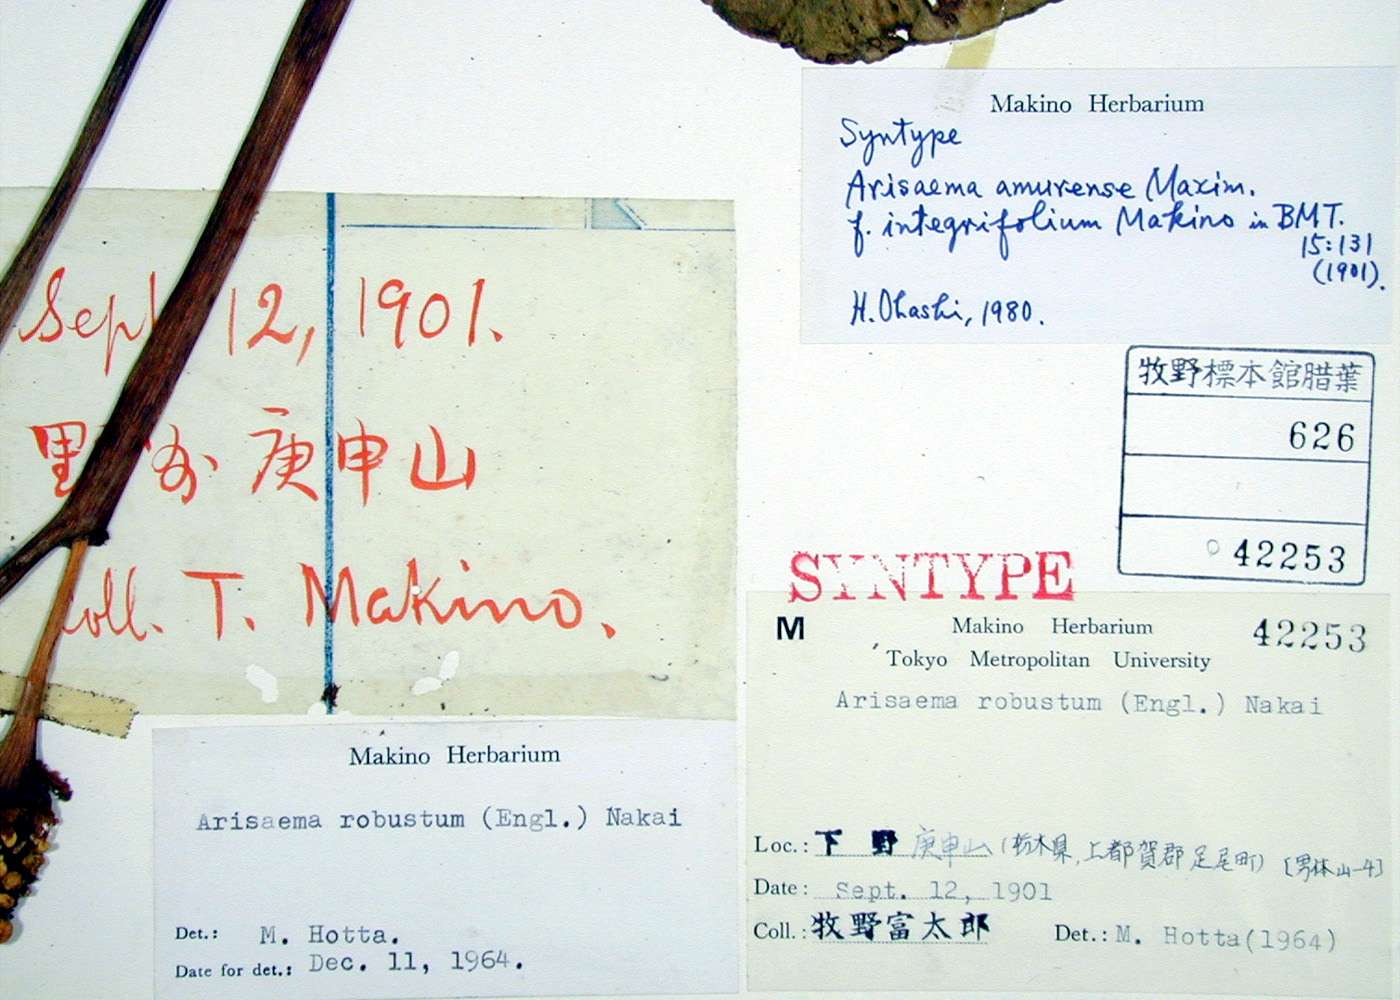 Makino Herbarium
Syntype
Arisaema amurense Maxim.
f. integrifolium Makino in BMT.
15:131
(1901).
H. Ohashi, 1980.
Sept 12, 1901.
庚申山
Coll. T. Makino.
牧野標本館腊葉
626
42253
SYNTYPE
M
Makino Herbarium
42253
Tokyo Metropolitan University
Arisaema robustum (Engl.) Nakai
Loc.: 下野 庚申山 (栃木県, 上都賀郡足尾町) [男体山-4]
Date: Sept. 12, 1901
Coll.: 牧野富太郎 Det.: M. Hotta(1964)
Makino Herbarium
Arisaema robustum (Engl.) Nakai
Det.: M. Hotta.
Date for det.: Dec. 11, 1964.